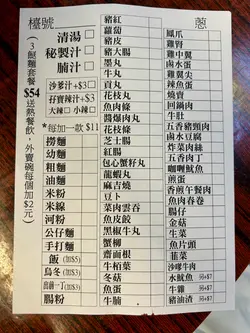 檯號
蔥
清湯
秘製汁
腩汁
沙爹汁+$3
孖寶辣汁+$3
大辣 小辣
*每加一款 $11
(3餸麵套餐
$54
送熱餐飲，外賣碗每個加2元)
撈麵
幼麵
粗麵
油麵
米粉
米線
河粉
公仔麵
手打麵
飯 (加$5)
烏冬(加$3)
出前一丁(加$3)
腸粉
豬紅
蘿蔔
豬皮
豬大腸
墨丸
牛丸
貢丸
花枝丸
魚肉條
醬爆肉丸
花枝片
芝士腸
紅腸
包心蟹籽丸
龍蝦丸
麻吉燒
豆卜
菜肉雲吞
魚皮餃
黑椒牛丸
蟹柳
齋面根
牛栢葉
冬菇
魚蛋
牛腩
鳳爪
雞腎
雞中翼
鹵水蛋
雞翼尖
辣魚蛋
燒賣
回鍋肉
牛肚
五香豬頸肉
鹵水豆腐
炸菜肉絲
五香肉丁
咖喱魷魚
煎蛋
香煎午餐肉
魚肉春卷
腸仔
金菇
生菜
魚片頭
韮菜
沙嗲牛肉
水魷魚 另+$7
生雞 另+$7
豬油渣 另+$2